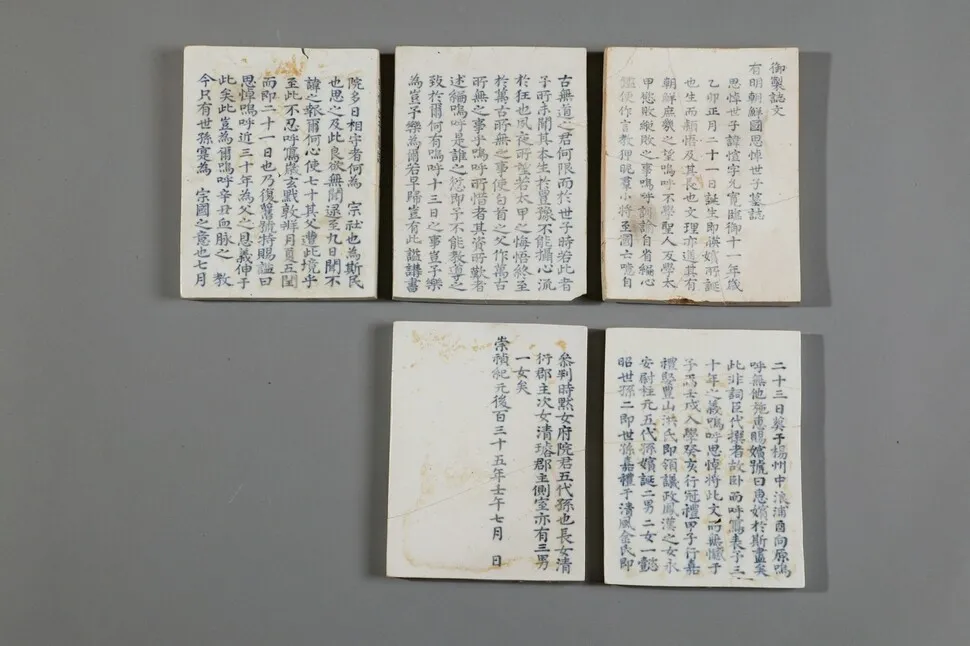 御製誌文
有明朝鮮國思悼世子墓誌
思悼世子諱愃字允寬臨御十一年歲
乙卯正月二十一日誕生即暎嬪所誕
也生而穎悟及其長也文理亦通其有
朝鮮庶幾之望嗚呼不學聖人反學太
甲慾敗縱敗之事嗚呼訓諭自省編心
鑑使作言教狎昵羣小將至國亡噫自
古無道之君何限而於世子時若此者
予所未聞其本生於豐豫不能攝心流
於狂也夙夜所望若太甲之悔悟終至
於萬古所無之事使白首之父作萬古
所無之事乎嗚呼所惜者其資所歎者
述編嗚呼是誰之愆即予不能教導之
致於爾何有嗚呼十三日之事豈予樂
為豈予樂為爾若早歸豈有此諡講書
院多日相守者何為 宗社也為斯民
也思之及此良欲無聞逮至九日聞不
諱之報爾何心使七十其父遭此境乎
至此不忍呼寫歲玄黓敦牂月夏五閏
而即二十一日也乃復舊號特賜諡曰
思悼嗚呼近三十年為父之恩義伸于
此矣此豈為爾嗚呼辛丑血脉之 教
今只有世孫寔為 宗國之意也七月
二十三日葬于楊州中浪浦酉向原嗚
呼無他施惠賜嬪號曰惠嬪於斯盡矣
此非詞臣代撰者故卧而呼寫表予三
十年之義嗚呼思悼將此文而無憾于
予焉壬戌入學癸亥行冠禮甲子行嘉
禮娶豐山洪氏即領議政鳳漢之女永
安尉柱元五代孫嬪誕二男二女一懿
昭世孫二即世孫嘉禮于清風金氏即
叅判時黙女府院君五代孫也長女清
衍郡主次女清璿郡主側室亦有三男
一女矣
崇禎紀元後百三十五年壬午七月 日